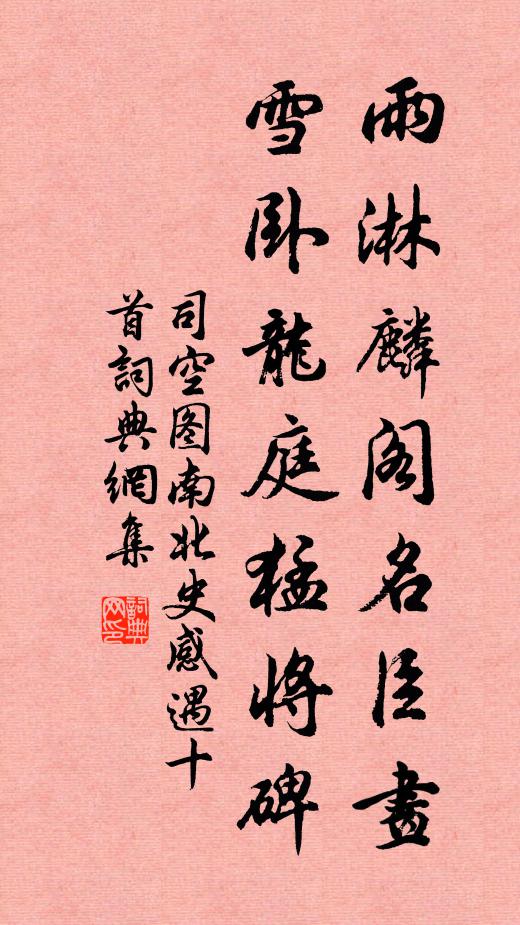 雨淋麟阁名臣畫
雪卧龍庭猛將碑
司空图南北史感遇十
首詞典網集
詞典
网印